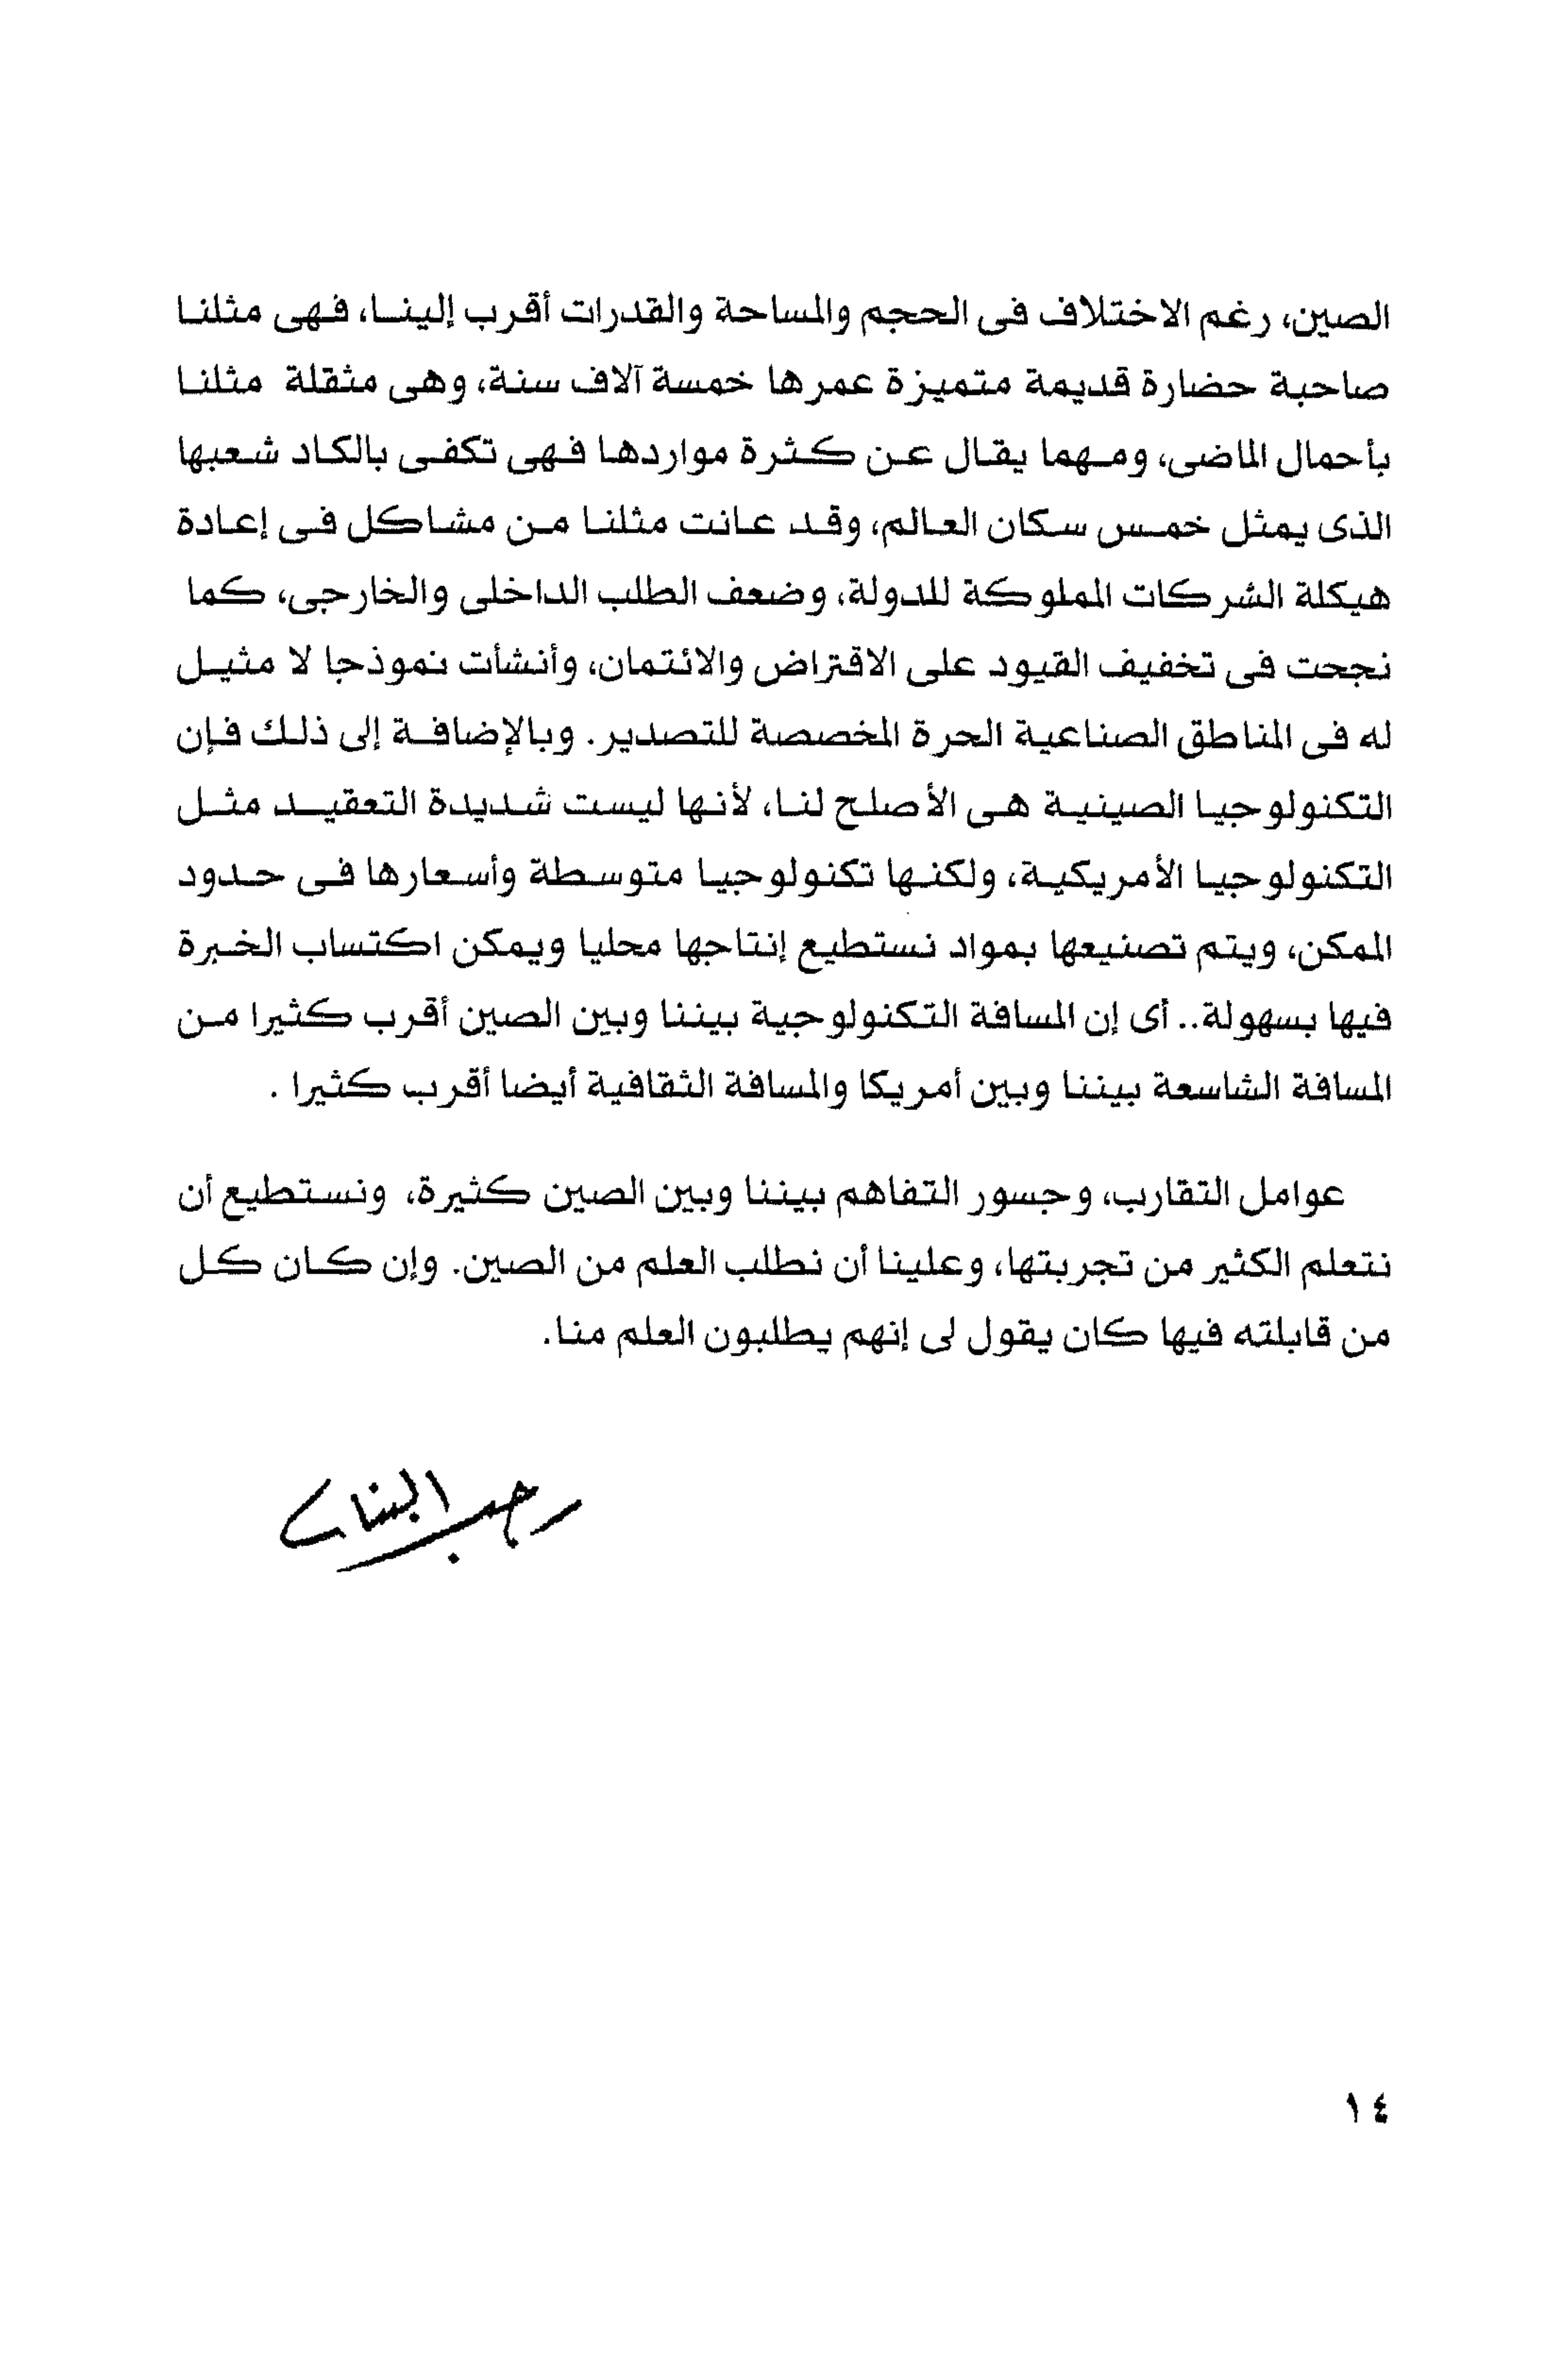 الصين، رغم الاختلاف فى الحجم والمساحة والقدرات أقرب إلينا، فهى مثلنا
صاحبة حضارة قديمة متميزة عمرها خمسة آلاف سنة، وهى مثقلة مثلنا
بأحمال الماضى، ومهما يقال عن كثرة مواردها فهى تكفى بالكاد شعبها
الذى يمثل خمس سكان العالم، وقد عانت مثلنا من مشاكل فى إعادة
هيكلة الشركات المملوكة للدولة، وضعف الطلب الداخلى والخارجى، كما
نجحت فى تخفيف القيود على الاقتراض والائتمان، وأنشأت نموذجا لا مثيل
له فى المناطق الصناعية الحرة المخصصة للتصدير. وبالإضافة إلى ذلك فإن
التكنولوجيا الصينية هى الأصلح لنا، لأنها ليست شديدة التعقيد مثل
التكنولوجيا الأمريكية، ولكنها تكنولوجيا متوسطة وأسعارها فى حدود
الممكن، ويتم تصنيعها بمواد نستطيع إنتاجها محليا ويمكن اكتساب الخبرة
فيها بسهولة.. أى إن المسافة التكنولوجية بيننا وبين الصين أقرب كثيرا من
المسافة الشاسعة بيننا وبين أمريكا والمسافة الثقافية أيضا أقرب كثيرا .
عوامل التقارب، وجسور التفاهم بيننا وبين الصين كثيرة، ونستطيع أن
نتعلم الكثير من تجربتها، وعلينا أن نطلب العلم من الصين. وإن كان كل
من قابلته فيها كان يقول لى إنهم يطلبون العلم منا.
رجب البنا
١٤